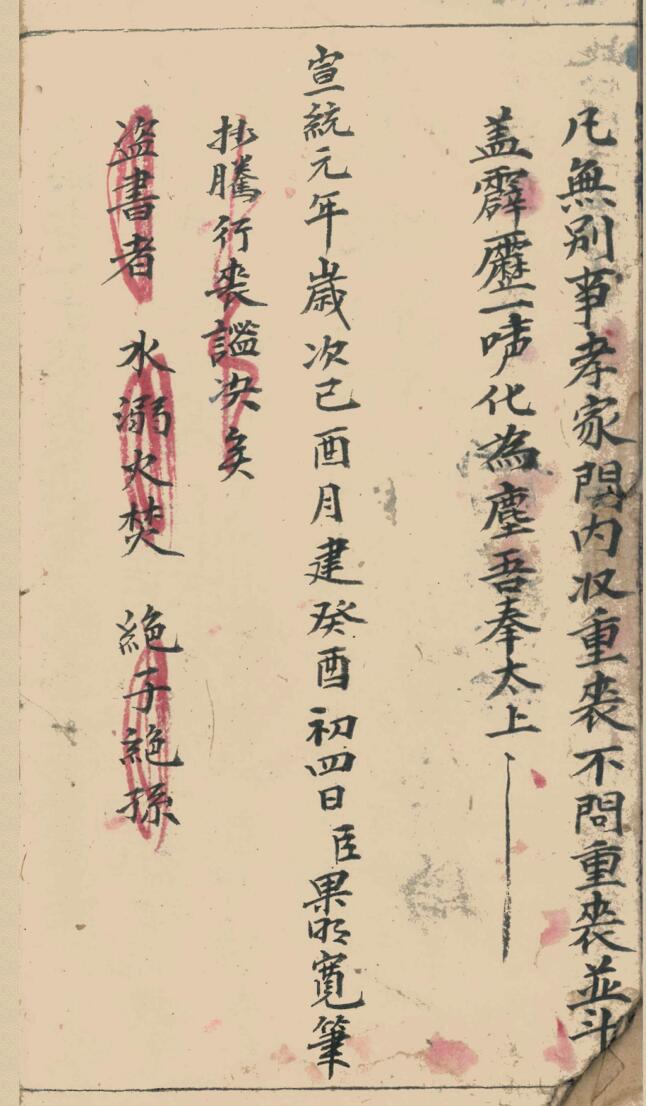 凡無別事孝家門内収重丧不問重丧並斗
盖霹靂一声化為塵吾奉太上
宣統元年歳次己酉月建癸酉初四日臣果明寛筆
抄騰行丧諡决矣
盗書者 水溺火焚 絶子絶孫